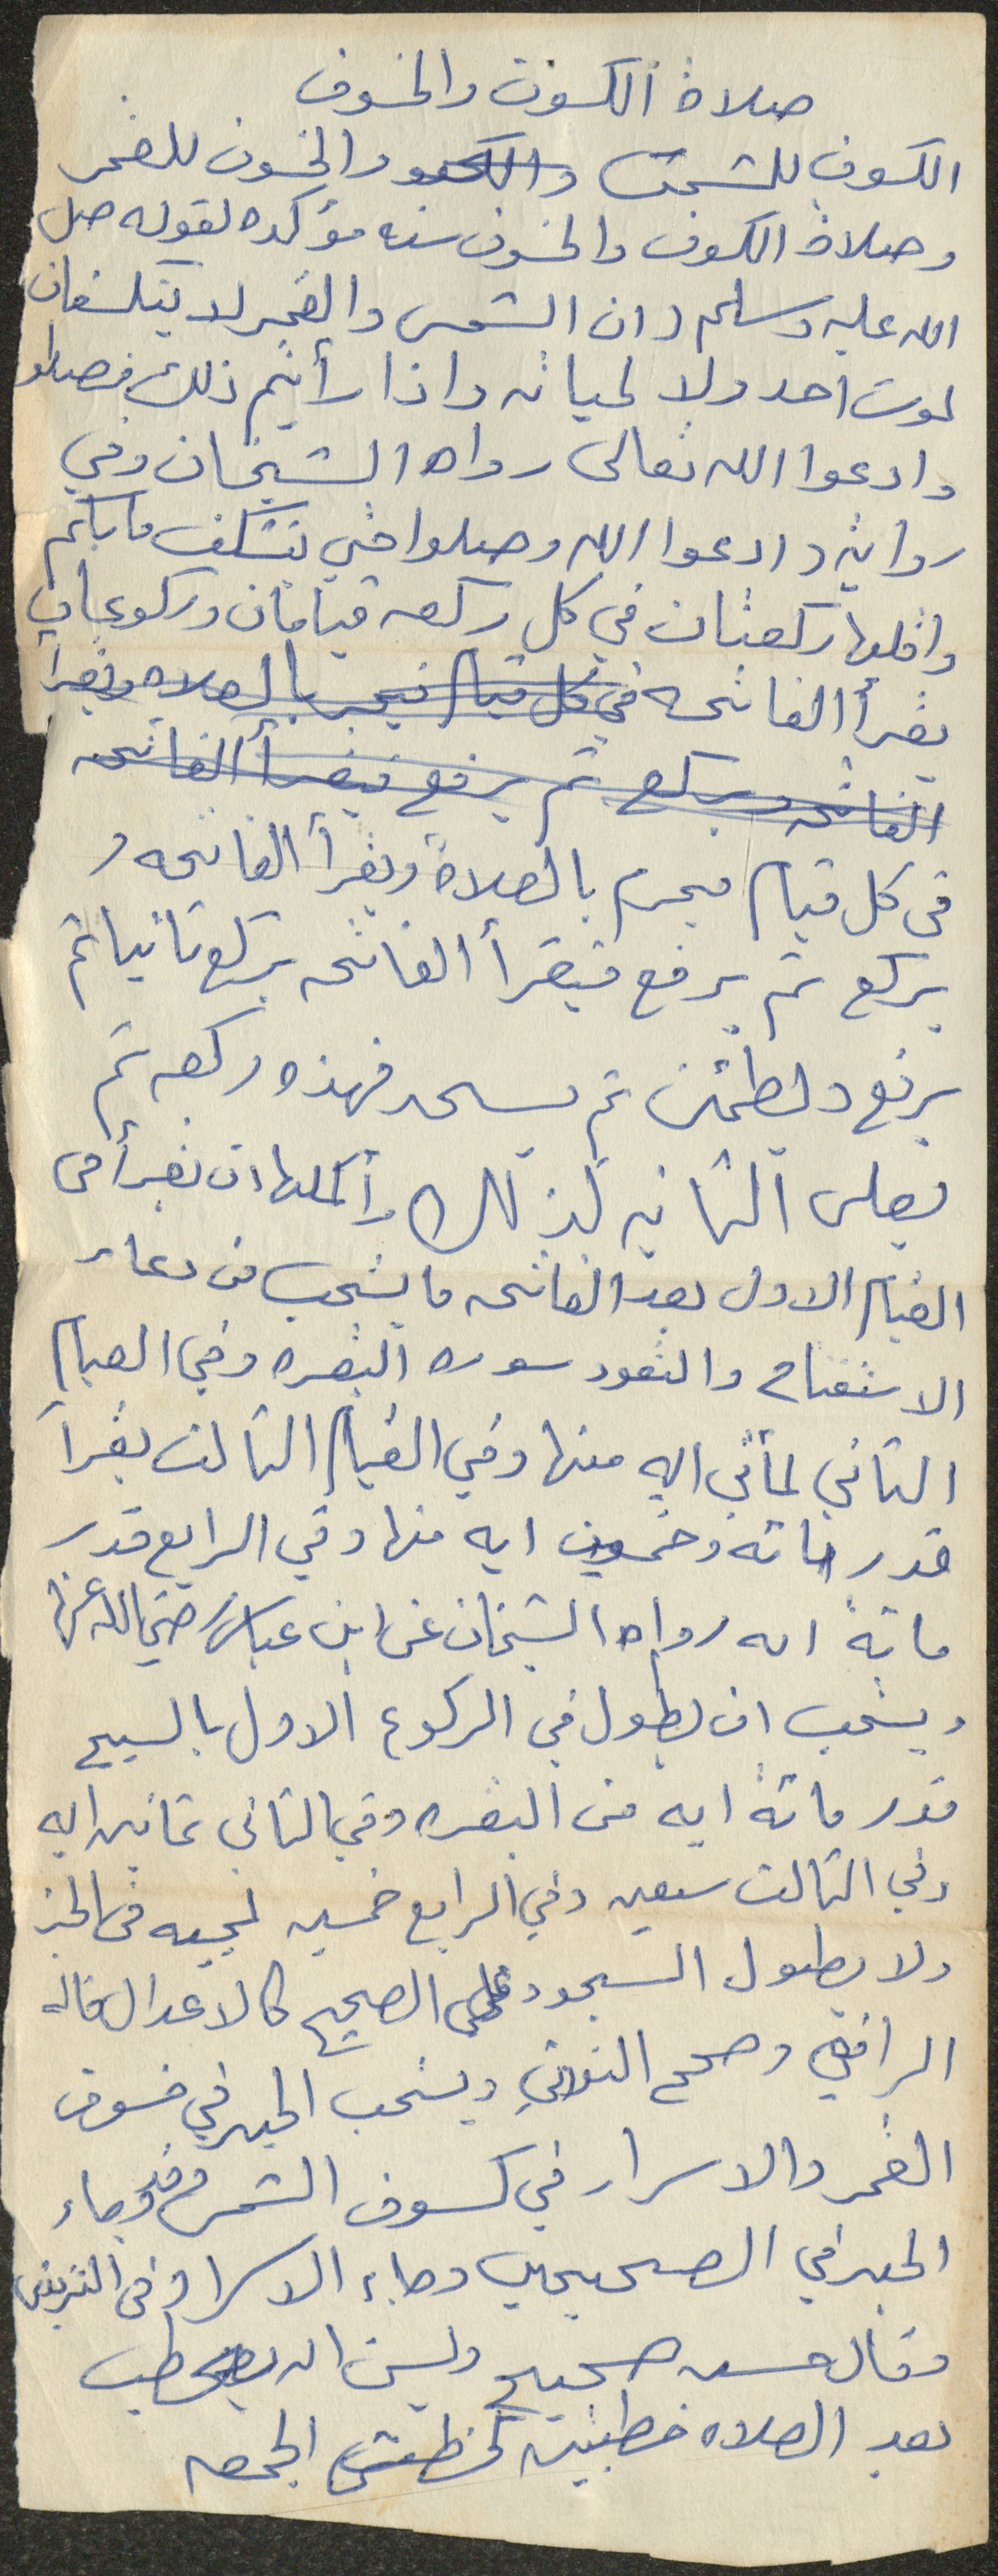 صلاة الكسوف والخسوف
الكسوف للشمس والخسوف للقمر
وصلاة الكسوف والخسوف سنه مؤكده لقوله صل
الله عليه وسلم ان الشمس والقمر لا ينكسفان
لموت احد ولا لحياته واذا رأيتم ذلك فصلو
وادعوا الله تعالى رواه الشيخان وفي
رواية وادعوا الله وصلوا حتى ينكشف ما بكم
واقلها ركعتان في كل ركعه قيامان وركوعان
يقرأ الفاتحه في كل قيام فيحرم بالصلاه ويقرأ
الفاتحه ويركع ثم يرفع فيقرأ الفاتحه
في كل قيام فيحرم بالصلاة ويقرأ الفاتحه و
يركع ثم يرفع فيقرأ الفاتحه يركع ثانيا ثم
يرفع ويطمئن ثم يسجد فهذه ركعه ثم
يصلى الثانيه كذلك وأكملها ان يقرأ في
القيام الاول بعد الفاتحه ما يستحب من دعاء
الاستفتاح والتعود سوره البقره وفي القيام
الثاني لمأتي ايه منها وفي القيام الثالث يقرأ
قدر مائة وخمسين ايه منها وفي الرابع قدر
مائة ايه رواه الشيخان عن ابن عباس رضي الله عنهما
ويستحب ان يطول في الركوع الاول بالتسبيح
قدر مائة ايه من البقره وفي الثاني ثمانين ايه
وفي الثالث سبعين وفي الرابع خمسين لمجيئه في الخبر
ولا يطول السجود على الصحيح كالاعتدال قاله
الرافعي وصحح النووي ويستحب الجهر في خسوف
القمر والاسرار في كسوف الشمس وقد جاء
الجهر في الصحيحين وجاء الاسرار في الترمذي
وقال حسن صحيح وليسن له يخطب
بعد الصلاه خطبتين كخطبتي الجمعه